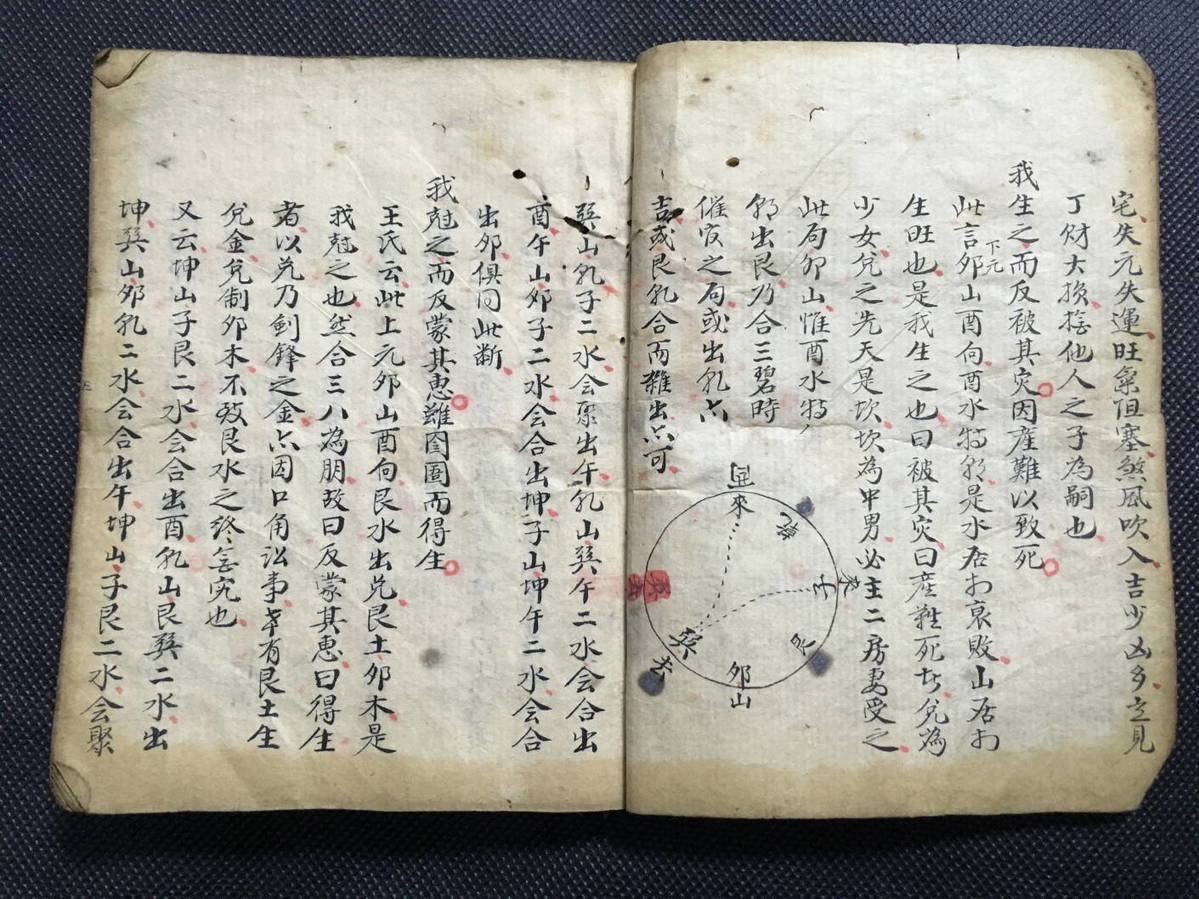 宅失元失運旺氣阻塞煞風吹入吉少凶多立見
丁財大損撫他人之子為嗣也
我生之而反被其灾因産難以致死
此言下元卯山酉向酉水特朝是水居於衰敗山居於
生旺也是我生之也曰被其灾曰産難死者兌為
少女兌之先天是坎坎為中男必主二房妻受之
此局卯山惟酉水特
朝出艮乃合三碧時
催官之局或出乹六
吉或艮乹合而雜出亦可
坤來
乹
壬
亥
艮
卯山
巽去
巽山乹子二水会聚出午乹山巽午二水会合出
酉午山卯子二水会合出坤子山坤午二水会合
出卯俱同此断
我尅之而反蒙其惠難囹圄而得生
王氏云此上元卯山酉向艮水出兌艮土卯木是
我尅之也然合三八為朋故曰反蒙其惠曰得生
者以兌乃剣鋒之金亦因口角訟事幸有艮土生
兌金兌制卯木不致艮水之終為究也
又云坤山子艮二水会合出酉乹山艮巽二水出
坤巽山卯乹二水会合出午坤山子艮二水会聚